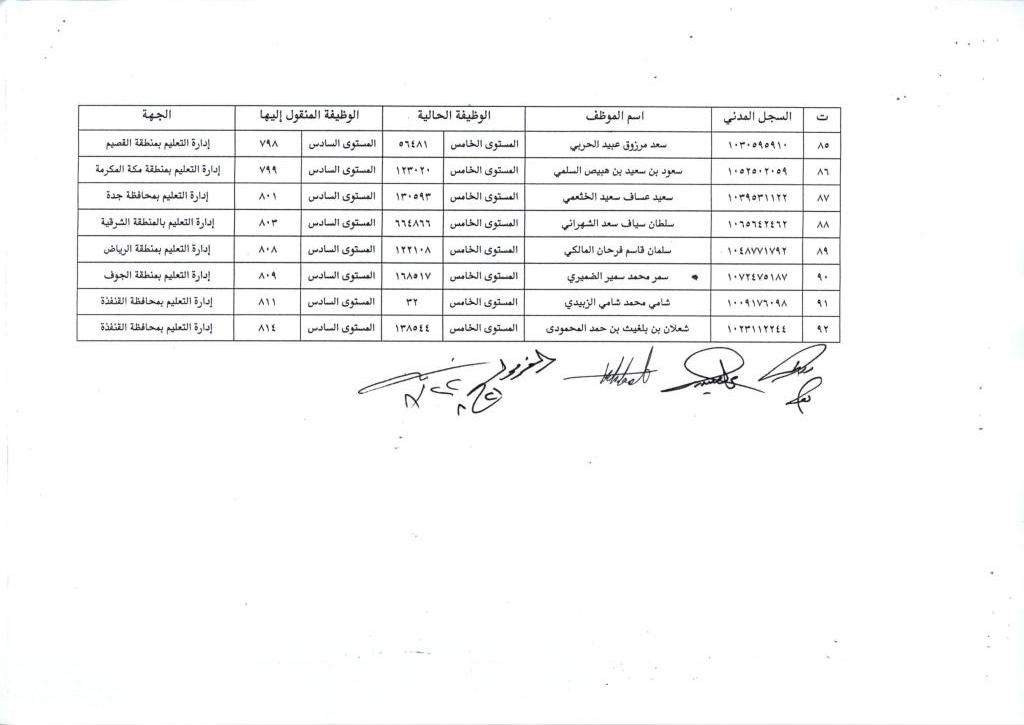 ت السجل المدني اسم الموظف الوظيفة الحالية الوظيفة المنقول إليها الجهة
٨٥ ١٠٣٠٥٩٥٩١٠ سعد مرزوق عبيد الحربي المستوى الخامس ٥٦٤٨١ المستوى السادس ٧٩٨ إدارة التعليم بمنطقة القصيم
٨٦ ١٠٥٢٥٠٢٠٥٩ سعود بن سعيد بن هبيص السلمي المستوى الخامس ١٢٣٠٢٠ المستوى السادس ٧٩٩ إدارة التعليم بمنطقة مكة المكرمة
٨٧ ١٠٣٩٥٣١١٢٢ سعيد عساف سعيد الخثعمي المستوى الخامس ١٣٠٥٩٣ المستوى السادس ٨٠١ إدارة التعليم بمحافظة جدة
٨٨ ١٠٦٥٦٤٢٤٦٢ سلطان سياف سعد الشهراني المستوى الخامس ٦٦٤٨٦٦ المستوى السادس ٨٠٣ إدارة التعليم بالمنطقة الشرقية
٨٩ ١٠٤٨٧٧١٧٩٢ سلمان قاسم فرحان المالكي المستوى الخامس ١٢٢١٠٨ المستوى السادس ٨٠٨ إدارة التعليم بمنطقة الرياض
٩٠ ١٠٧٢٤٧٥١٨٧ سمر محمد سمير الضميري المستوى الخامس ١٦٨٥١٧ المستوى السادس ٨٠٩ إدارة التعليم بمنطقة الجوف
٩١ ١٠٠٩١٧٦٠٩٨ شامي محمد شامي الزبيدي المستوى الخامس ٣٢ المستوى السادس ٨١١ إدارة التعليم بمحافظة القنفذة
٩٢ ١٠٢٣١١٢٢٤٤ شعلان بن بلغيث بن حمد المحمودى المستوى الخامس ١٣٨٥٤٤ المستوى السادس ٨١٤ إدارة التعليم بمحافظة القنفذة